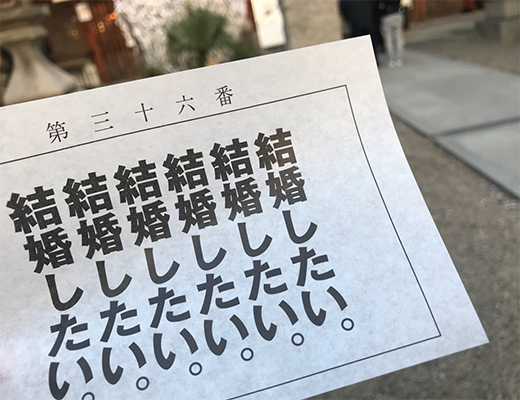 第三十六番
結婚したい。
結婚したい。
結婚したい。
結婚したい。
結婚したい。
結婚したい。